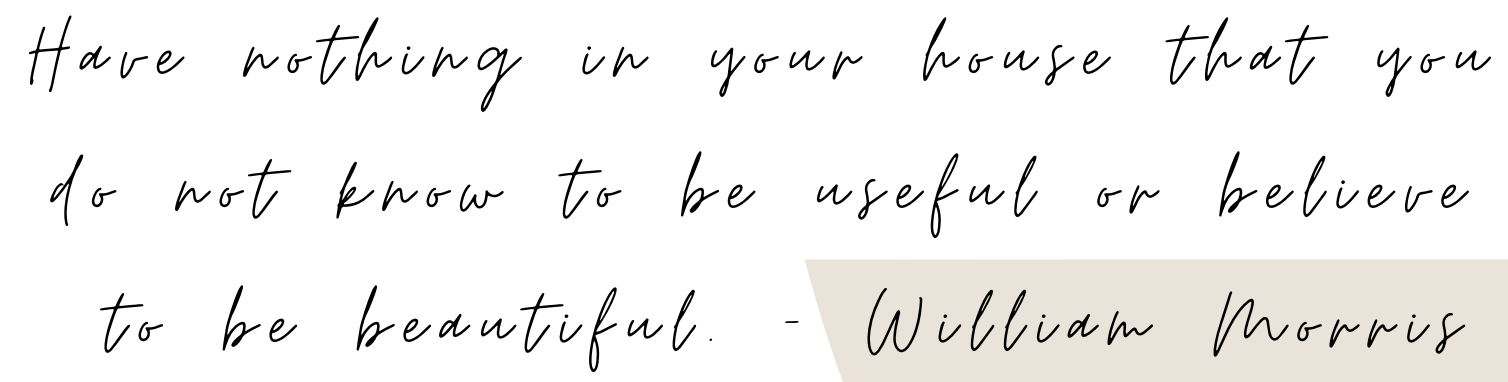 Have nothing in your house that you
do not know to be useful or believe
to be beautiful. - William Morris